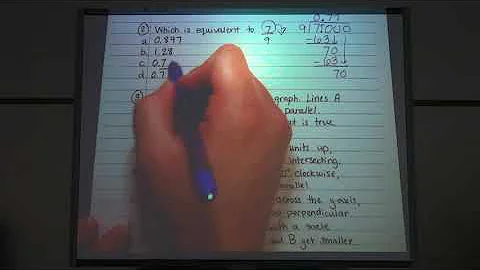 ② Which is equivalent to 7/9 ?
a. 0.847
b. 1.28
c. 0.7
d. 0.7
0.77
9)7.000
-63↓
70
-63↓
70
graph. Lines A
parallel.
is true
units up,
intersecting.
clockwise,
parallel
across the y-axis,
perpendicular
with a scale
and B get smaller